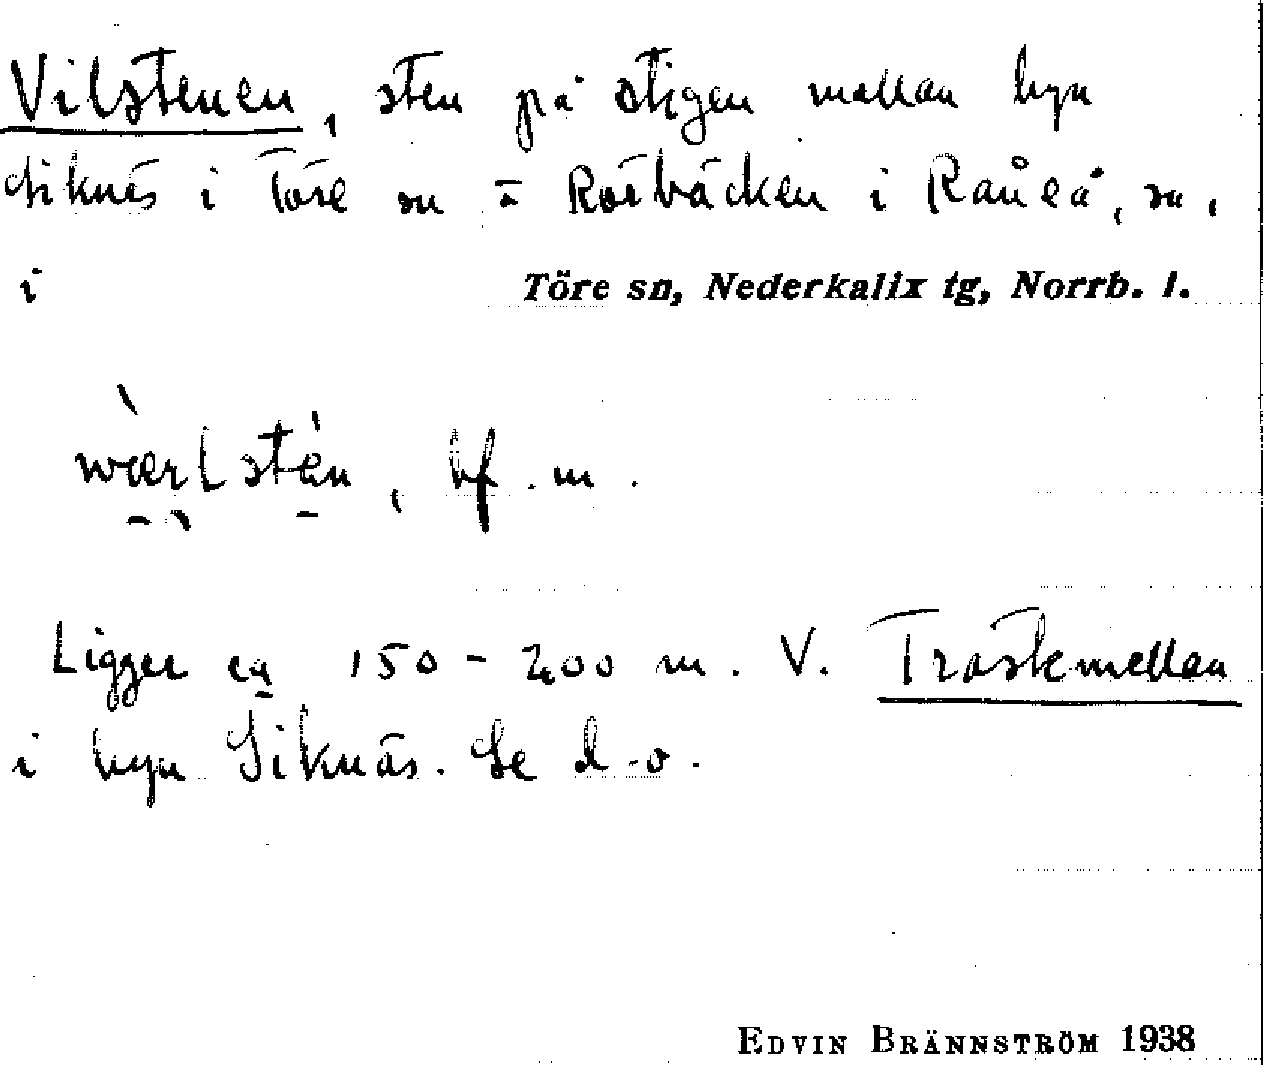 Vilstenen, sten på stigen mellan byn
Siknäs i Töre sn o Rörbäcken i Råneå, sn,
i Töre sn, Nederkalix tg, Norrb. l.
bf. m.
Ligger ca 150-200 m. V. Träskmellan
i byn Siknäs. Se d.o.
EDVIN BRÄNNSTRÖM 1938